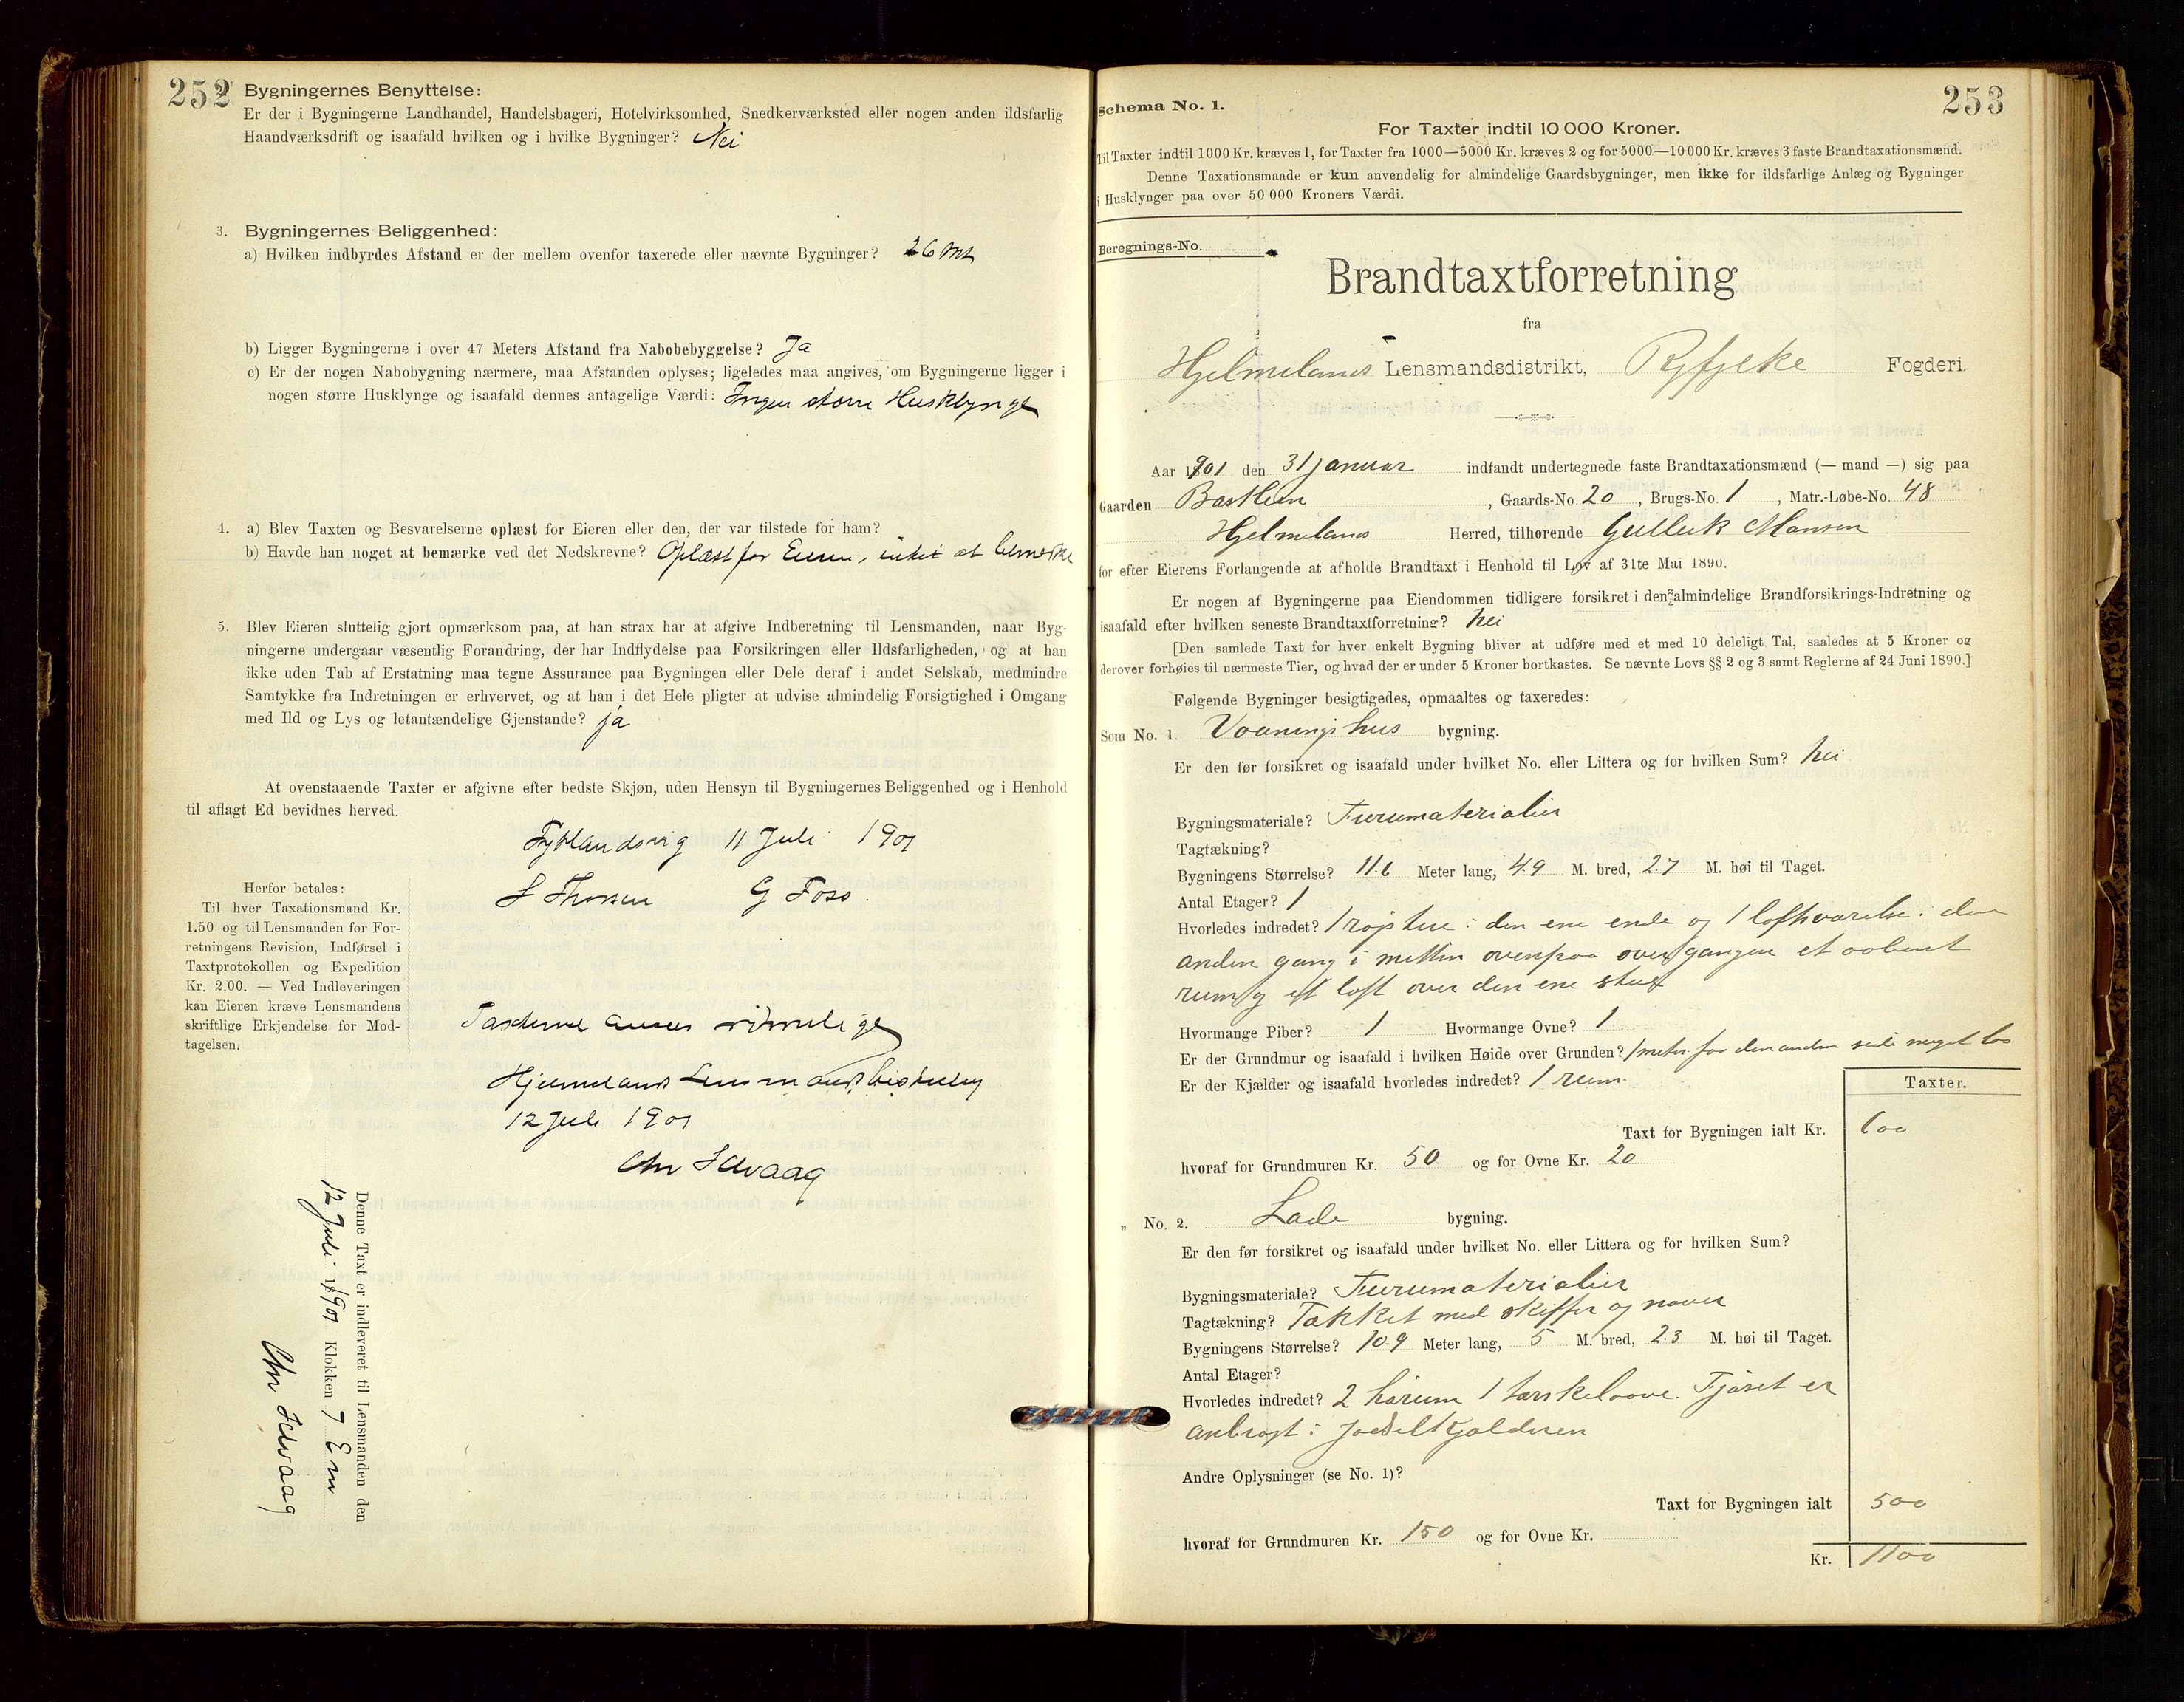 252
Bygningernes Benyttelse:
Er der i Bygningerne Landhandel, Handelsbageri, Hotelvirksomhed, Snedkerværksted eller nogen anden ildsfarlig
Haandværksdrift og isaafald hvilken og i hvilke Bygninger? Nei
3. Bygningernes Beliggenhed:
a) Hvilken indbyrdes Afstand er der mellem ovenfor taxerede eller nævnte Bygninger? 26 Mt
b) Ligger Bygningerne i over 47 Meters Afstand fra Nabobebyggelse? Ja
c) Er der nogen Nabobygning nærmere, maa Afstanden oplyses; ligeledes maa angives, om Bygningerne ligger i
nogen større Husklynge og isaafald dennes antagelige Værdi: Ingen større Husklynge
4. a) Blev Taxten og Besvarelserne oplæst for Eieren eller den, der var tilstede for ham?
b) Havde han noget at bemærke ved det Nedskrevne? Oplæst for Eieren, intet at bemerke
5. Blev Eieren sluttelig gjort opmærksom paa, at han strax har at afgive Indberetning til Lensmanden, naar Byg-
ningerne undergaar væsentlig Forandring, der har Indflydelse paa Forsikringen eller Ildsfarligheden, og at han
ikke uden Tab af Erstatning maa tegne Assurance paa Bygningen eller Dele deraf i andet Selskab, medmindre
Samtykke fra Indretningen er erhvervet, og at han i det Hele pligter at udvise almindelig Forsigtighed i Omgang
med Ild og Lys og letantændelige Gjenstande? ja
At ovenstaaende Taxter er afgivne efter bedste Skjøn, uden Hensyn til Bygningernes Beliggenhed og i Henhold
til aflagt Ed bevidnes herved.
11 Juli 1901
Herfor betales:
Til hver Taxationsmand Kr.
1.50 og til Lensmanden for For-
retningens Revision, Indførsel i
Taxtprotokollen og Expedition
Kr. 2.00. — Ved Indleveringen
kan Eieren kræve Lensmandens
skriftlige Erkjendelse for Mod-
tagelsen.
S Thorsen G Foss
Taxterne ansees rimelige
Hjelmelands Lensmandsbestilling
12 Juli 1901
Chr
Denne Taxt er indleveret til Lensmanden den
12 Juli 1901 Klokken 7 Em
Chr
253
Schema No. 1.
For Taxter indtil 10 000 Kroner.
Til Taxter indtil 1000 Kr. kræves 1, for Taxter fra 1000—5000 Kr. kræves 2 og for 5000—10 000 Kr. kræves 3 faste Brandtaxationsmænd.
Denne Taxationsmaade er kun anvendelig for almindelige Gaardsbygninger, men ikke for ildsfarlige Anlæg og Bygninger
i Husklynger paa over 50 000 Kroners Værdi.
Beregnings-No.
Brandtaxtforretning
fra
Hjelmelands Lensmandsdistrikt, Ryfylke Fogderi.
Aar 1901 den 31 januar indfandt undertegnede faste Brandtaxationsmænd (— mand —) sig paa
Gaarden , Gaards-No. 20 , Brugs-No. 1 , Matr.-Løbe-No. 48
Hjelmelands Herred, tilhørende
for efter Eierens Forlangende at afholde Brandtaxt i Henhold til Lov af 31te Mai 1890.
Er nogen af Bygningerne paa Eiendommen tidligere forsikret i den almindelige Brandforsikrings-Indretning og
isaafald efter hvilken seneste Brandtaxtforretning? nei
[Den samlede Taxt for hver enkelt Bygning bliver at udføre med et med 10 deleligt Tal, saaledes at 5 Kroner og
derover forhøies til nærmeste Tier, og hvad der er under 5 Kroner bortkastes. Se nævnte Lovs §§ 2 og 3 samt Reglerne af 24 Juni 1890.]
Følgende Bygninger besigtigedes, opmaaltes og taxeredes:
Som No. 1. Vaaningshus bygning.
Er den før forsikret og isaafald under hvilket No. eller Littera og for hvilken Sum? nei
Bygningsmateriale? Furumaterialier
Tagtækning?
Bygningens Størrelse? 11.6 Meter lang, 4.9 M. bred, 2.7 M. høi til Taget.
Antal Etager? 1
Hvorledes indredet? 1 i den ene ende og 1 i den
anden gang i mitten ovenpaa over gangen et aabent
rum og et loft over den ene stue
Hvormange Piber? 1 Hvormange Ovne? 1
Er der Grundmur og isaafald i hvilken Høide over Grunden? 1 meter paa den anden side meget lav
Er der Kjælder og isaafald hvorledes indredet? 1 rum
Taxter.
Taxt for Bygningen ialt Kr. 600
hvoraf for Grundmuren Kr. 50 og for Ovne Kr. 20
„ No. 2. Lade bygning.
Er den før forsikret og isaafald under hvilket No. eller Littera og for hvilken Sum?
Bygningsmateriale? Furumaterialier
Tagtækning? Tækket med skiffer og næver
Bygningens Størrelse? 10.9 Meter lang, 5 M. bred, 2.3 M. høi til Taget.
Antal Etager?
Hvorledes indredet? 2 hørum 1 tærskeloove. Fjøset er
anbragt i
Andre Oplysninger (se No. 1)?
Taxt for Bygningen ialt 500
hvoraf for Grundmuren Kr. 150 og for Ovne Kr.
Kr. 1100